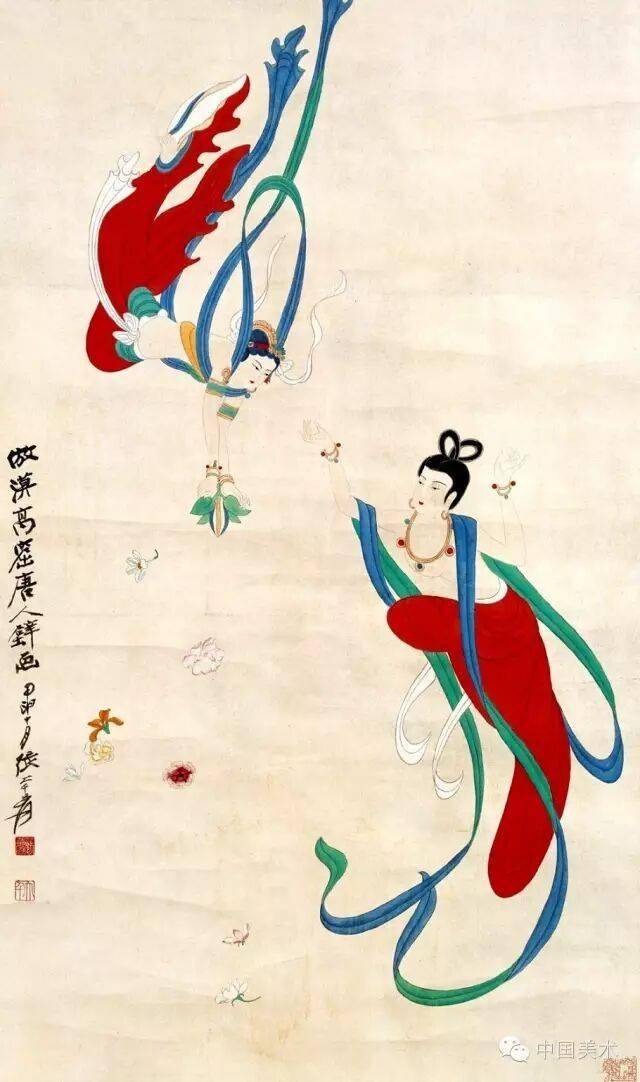 倣漠高窟唐人壁画 甲申十月 張大千爰
中国美术